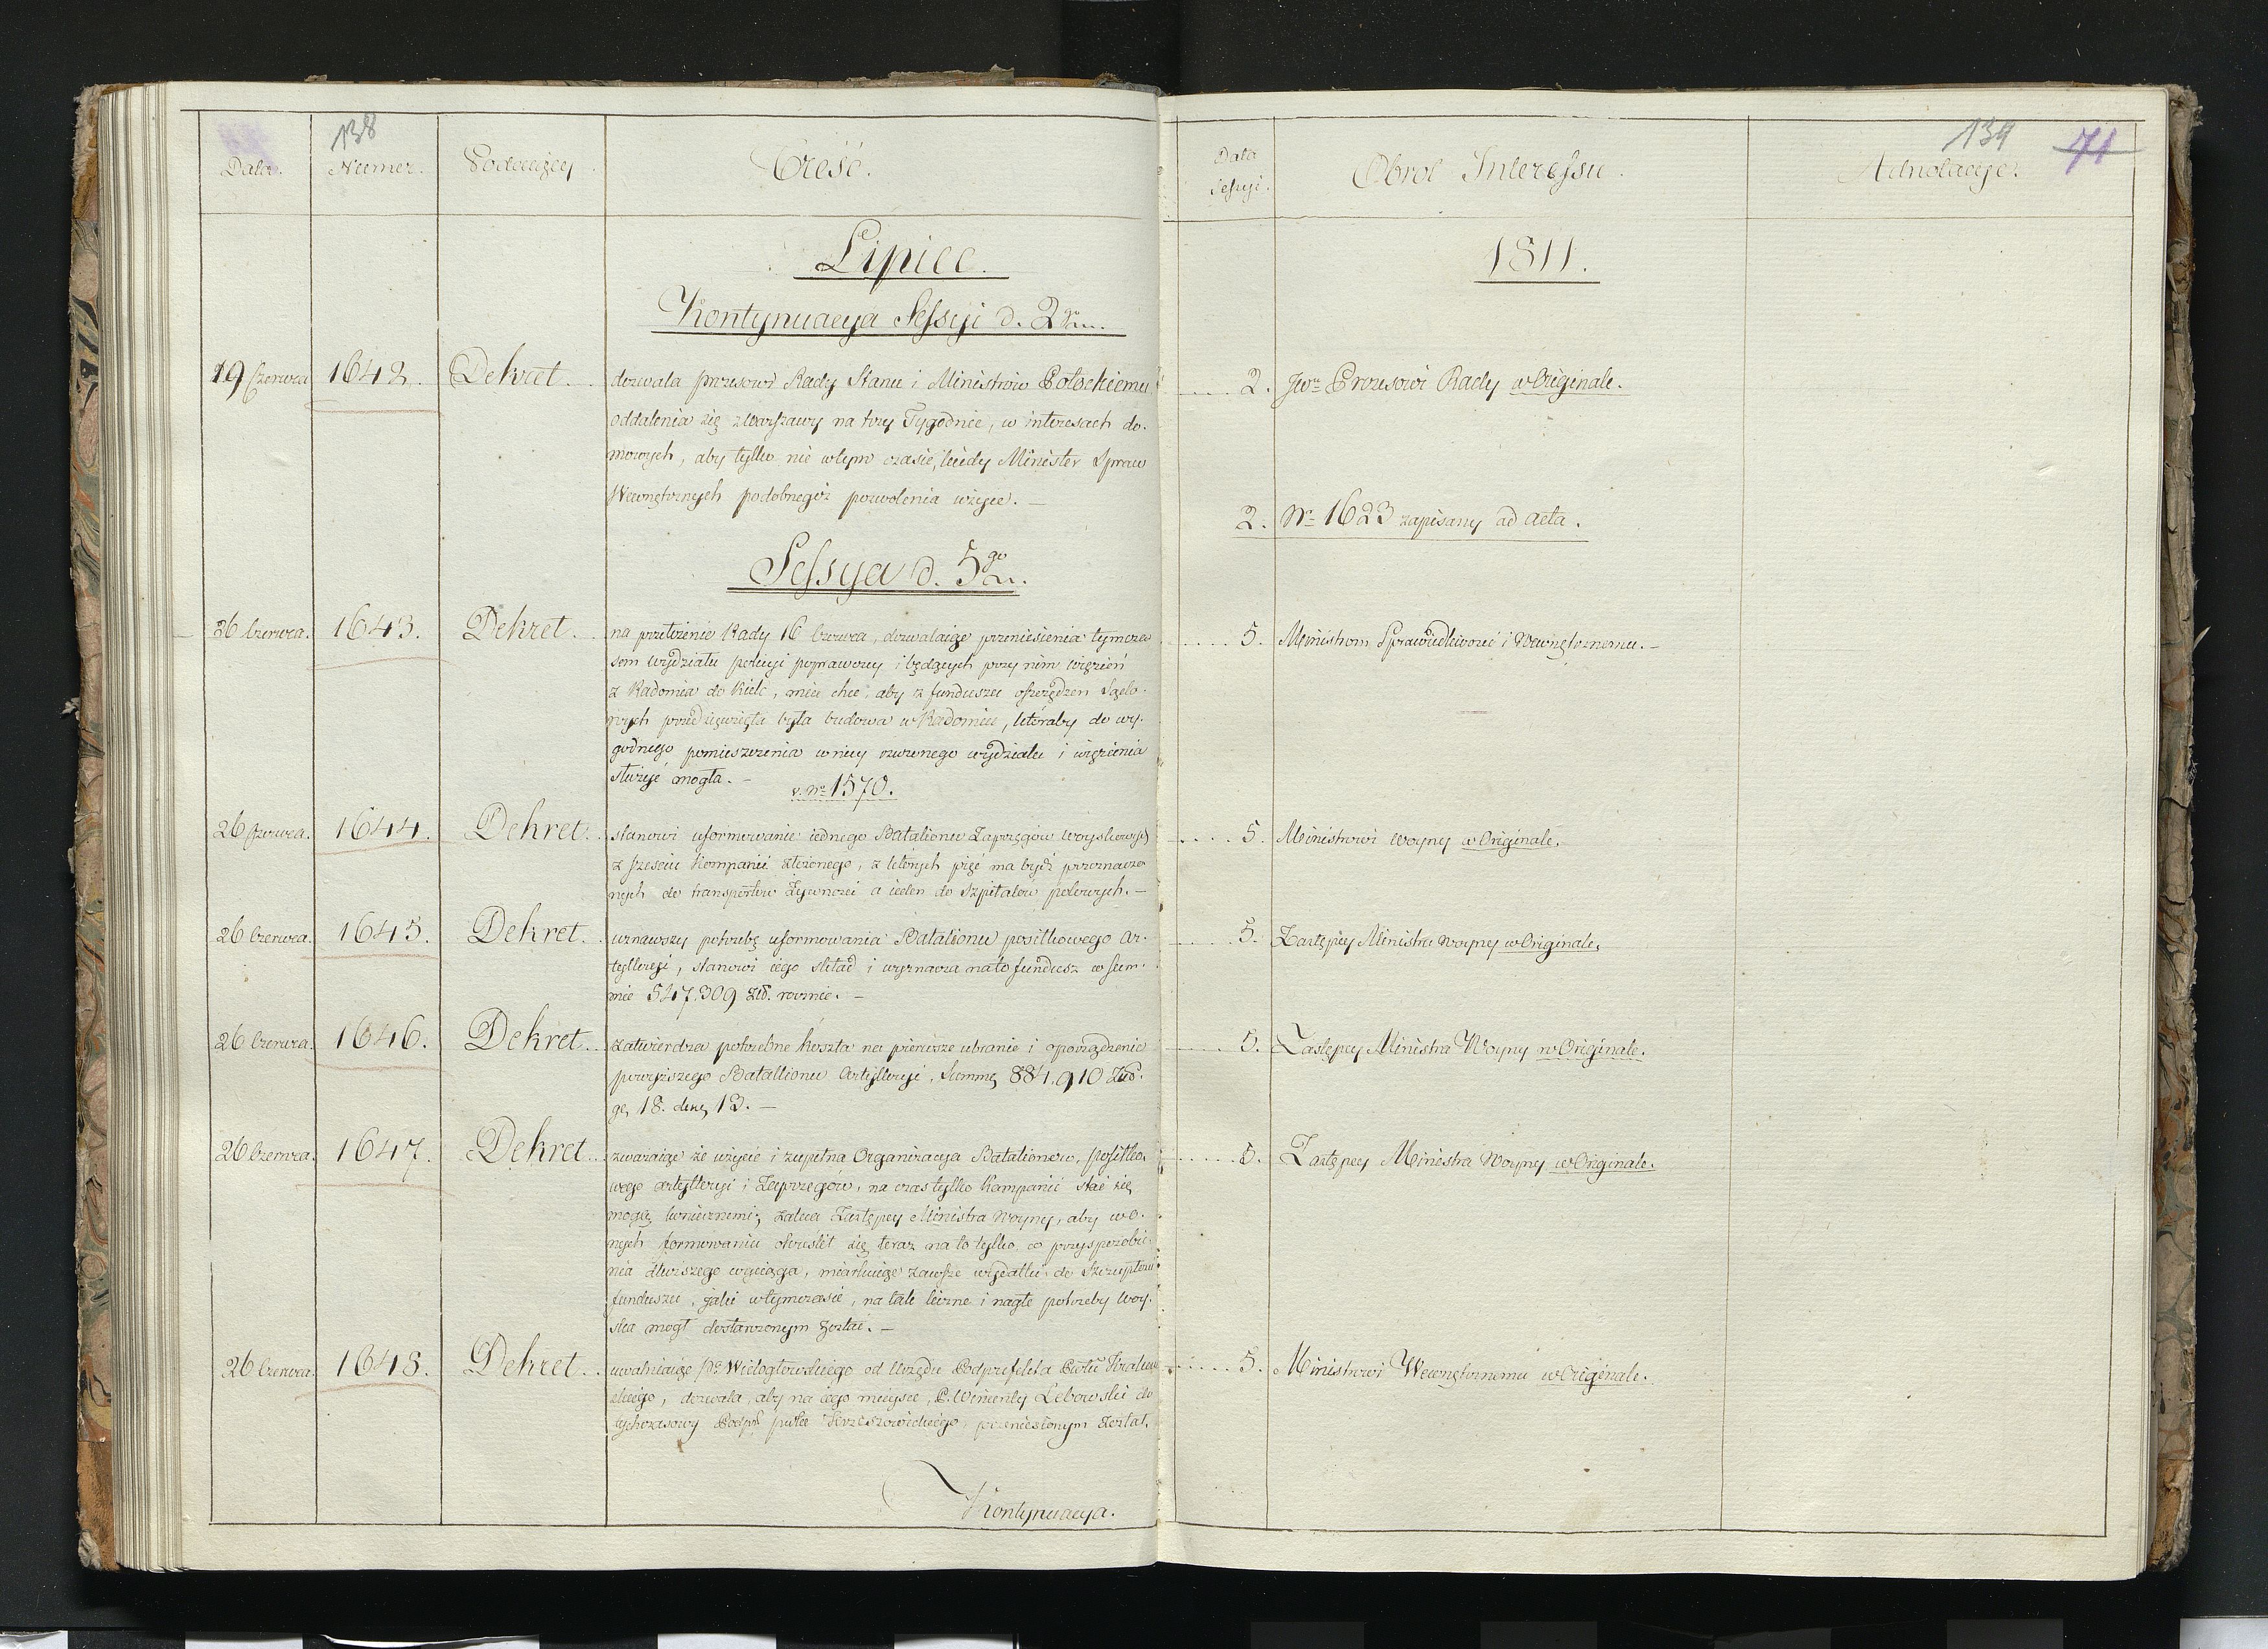 138
Data. Numer. Podaiący. Treść.
Lipiec.
Kontynuacya Sessyi d. 2go m.
19 Czerwca 1642. Dekret. dozwala prezesowi Rady Stanu i Ministrów Potockiemu
oddalenia się z Warszawy na trzy Tygodnie, w interesach do-
mowych, aby tylko nie w tym czasie, kiedy Minister Spraw
Wewnętrznych podobnegoż pozwolenia użyie. —
Sessya d. 5go m.
26 Czerwca. 1643. Dekret. na przełożenie Rady 16 Czerwca, dozwalaiąc przeniesienia tymcza
sem wydziału policyi poprawczey i będących przy nim więzień
z Radomia do Kielc, mieć chce, aby z funduszu oszczędzeń Sądo-
wych przedsięwzięta była budowa w Radomiu, któraby do wy-
godnego pomieszczenia w niey rzeczonego wydziału i więzienia
służyć mogła. —
v. Nº 1570.
26 Czerwca. 1644. Dekret. stanowi uformowanie iednego Batalionu Zaprzęgów woyskowych
z sześciu Kompanii złożonego, z których pięć ma bydź przeznaczo
nych do transportów Żywności a ieden do Szpitalów polowych. —
26 Czerwca. 1645. Dekret. uznawszy potrzebę uformowania Batalionu posiłkowego Ar-
tylleryi, stanowi iego skład i wyznacza na to fundusz w Sum-
mie 547.309 Złł. rocznie. —
26 Czerwca. 1646. Dekret. zatwierdza potrzebne koszta na pierwsze ubranie i oporządzenie
powyższego Batallionu Artylleryi, Summę 884.910 Złł.
gr 18. den 13. —
26 Czerwca. 1647. Dekret. zważaiąc że użycie i zupełna Organizacya Batalionów, posiłko-
wego artylleryi i Zaprzęgów, na czas tylko Kampanii stać się
mogą koniecznemi; zaleca Zastępcy Ministra Woyny, aby w o-
nych formowaniu określił się teraz na to tylko, co przysposobie-
nia dłuższego wyciąga, miarkuiąc zawsze wydatki do szczupłego
funduszu, jaki w tymczasie, na tak liczne i nagłe potrzeby Woy-
ska mógł dostarczonym zostać. —
26 Czerwca. 1648. Dekret. uwalniaiąc Pª Wielogłowskiego od Urzędu Podprefekta Pwtu Krakow
skiego, dozwala, aby na iego mieysce, P. Wincenty Łętowski do
tychczasowy Podpf. pwtu Krzeszowickiego, przeniesionym został.
Kontynuacya.
139 71
Data Sessyi. Obrot Interessu. Adnotacye.
1811.
2. JWu Prezesowi Rady w Originale.
2. Nr 1623 zapisany ad acta.
5. Ministrom Sprawiedliwości i Wewnętrznemu. —
5. Ministrowi Woyny w Originale.
5. Zastępcy Ministra Woyny w Originale.
5. Zastępcy Ministra Woyny w Originale.
5. Zastępcy Ministra Woyny w Originale.
5. Ministrowi Wewnętrznemu w Originale.